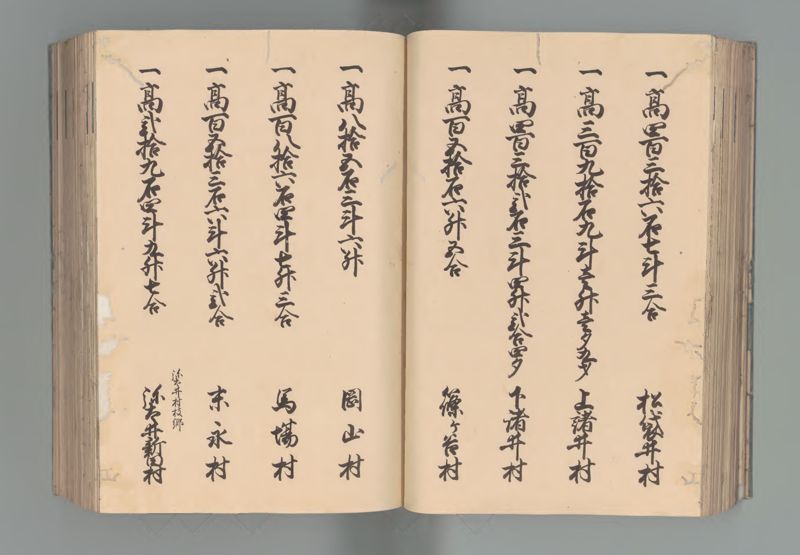 一高四百三拾六石七斗三合 松袋井村
一高三百九拾石九斗壱升壱夕五夕 上諸井村
一高四百三拾弐石三斗四升弐合四夕 下諸井村
一高百五拾石六升五合 篠ヶ谷村
一高八拾五石三斗六升 岡山村
一高百八拾六石四斗七升三合 馬場村
一高百五拾三石六斗六升弐合 末永村
村枝郷
一高弐拾九石四斗九升七合 井新田村